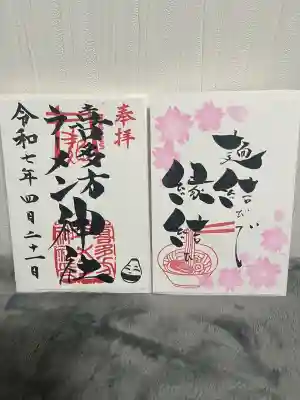 奉拝
喜多方
ラーメン神社
令和七年四月二十一日
麺結びで
縁結び